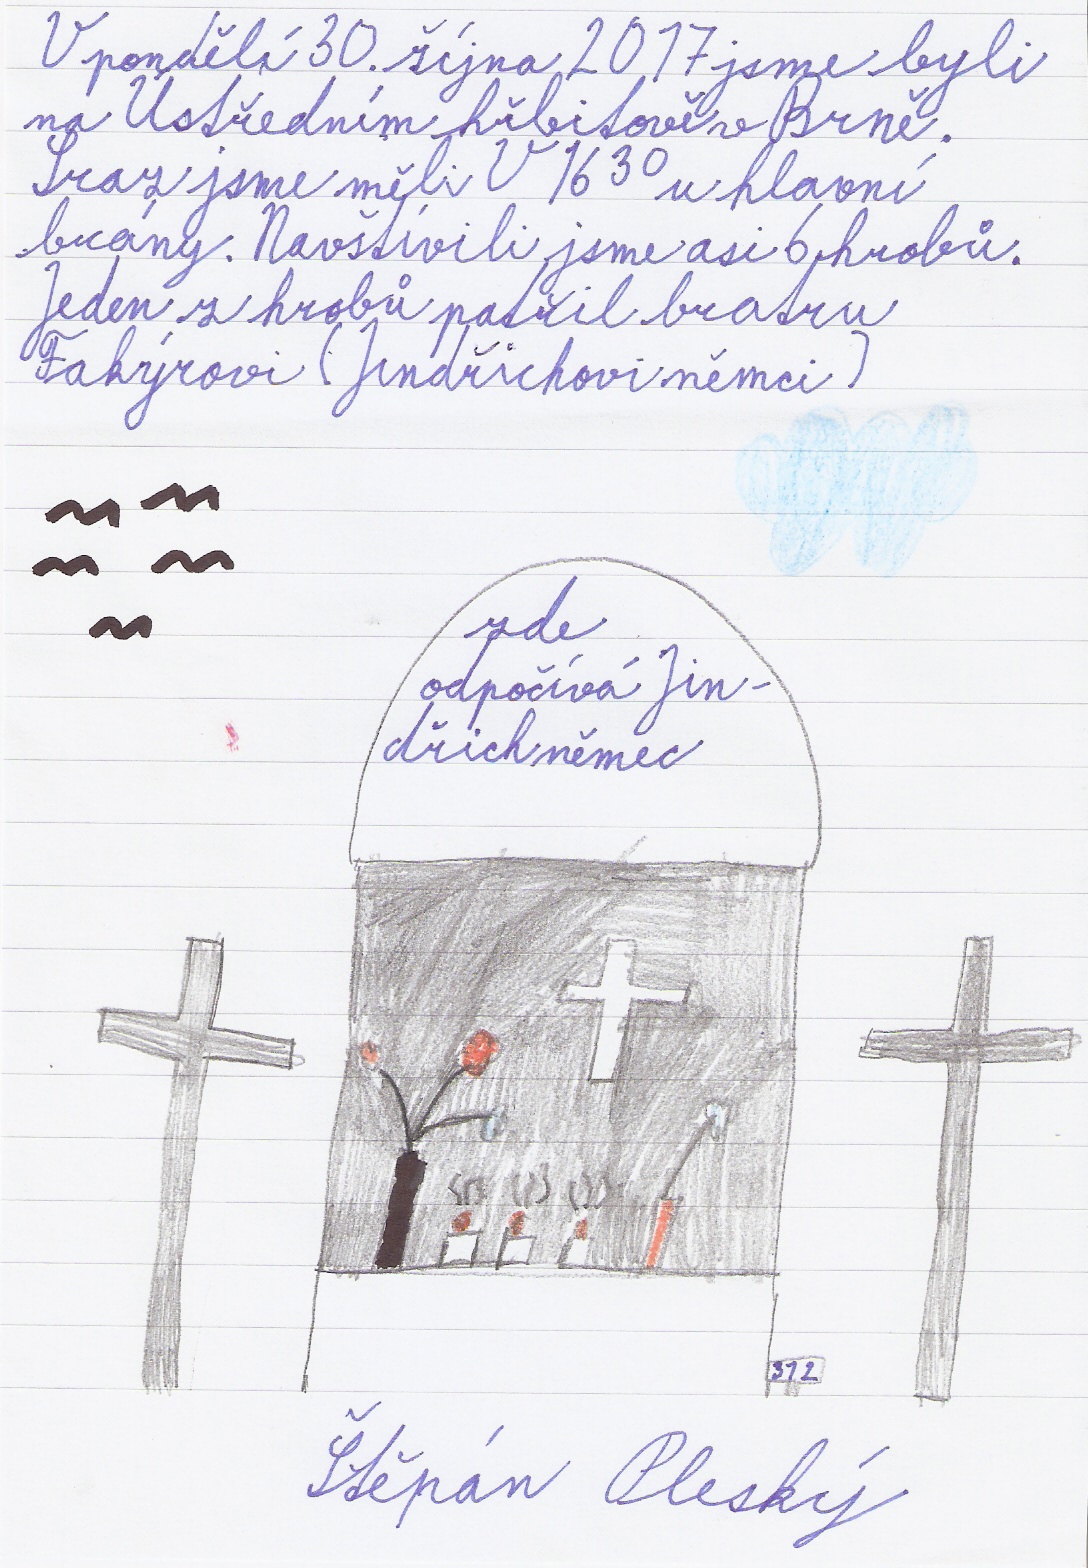 V pondělí 30. října 2017 jsme byli
na Ústředním hřbitově v Brně.
Sraz jsme měli V 16 30 u hlavní
brány. Navštívili jsme asi 6 hrobů.
Jeden z hrobů patřil bratru
Fakýrovi (Jindřichovi němci)
zde
odpočívá Jin-
dřich němec
312
Štěpán Pleský